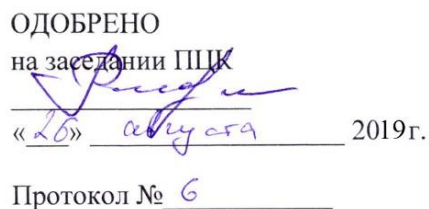 ОДОБРЕНО
на заседании ПЦК
«26» августа 2019г.
Протокол № 6